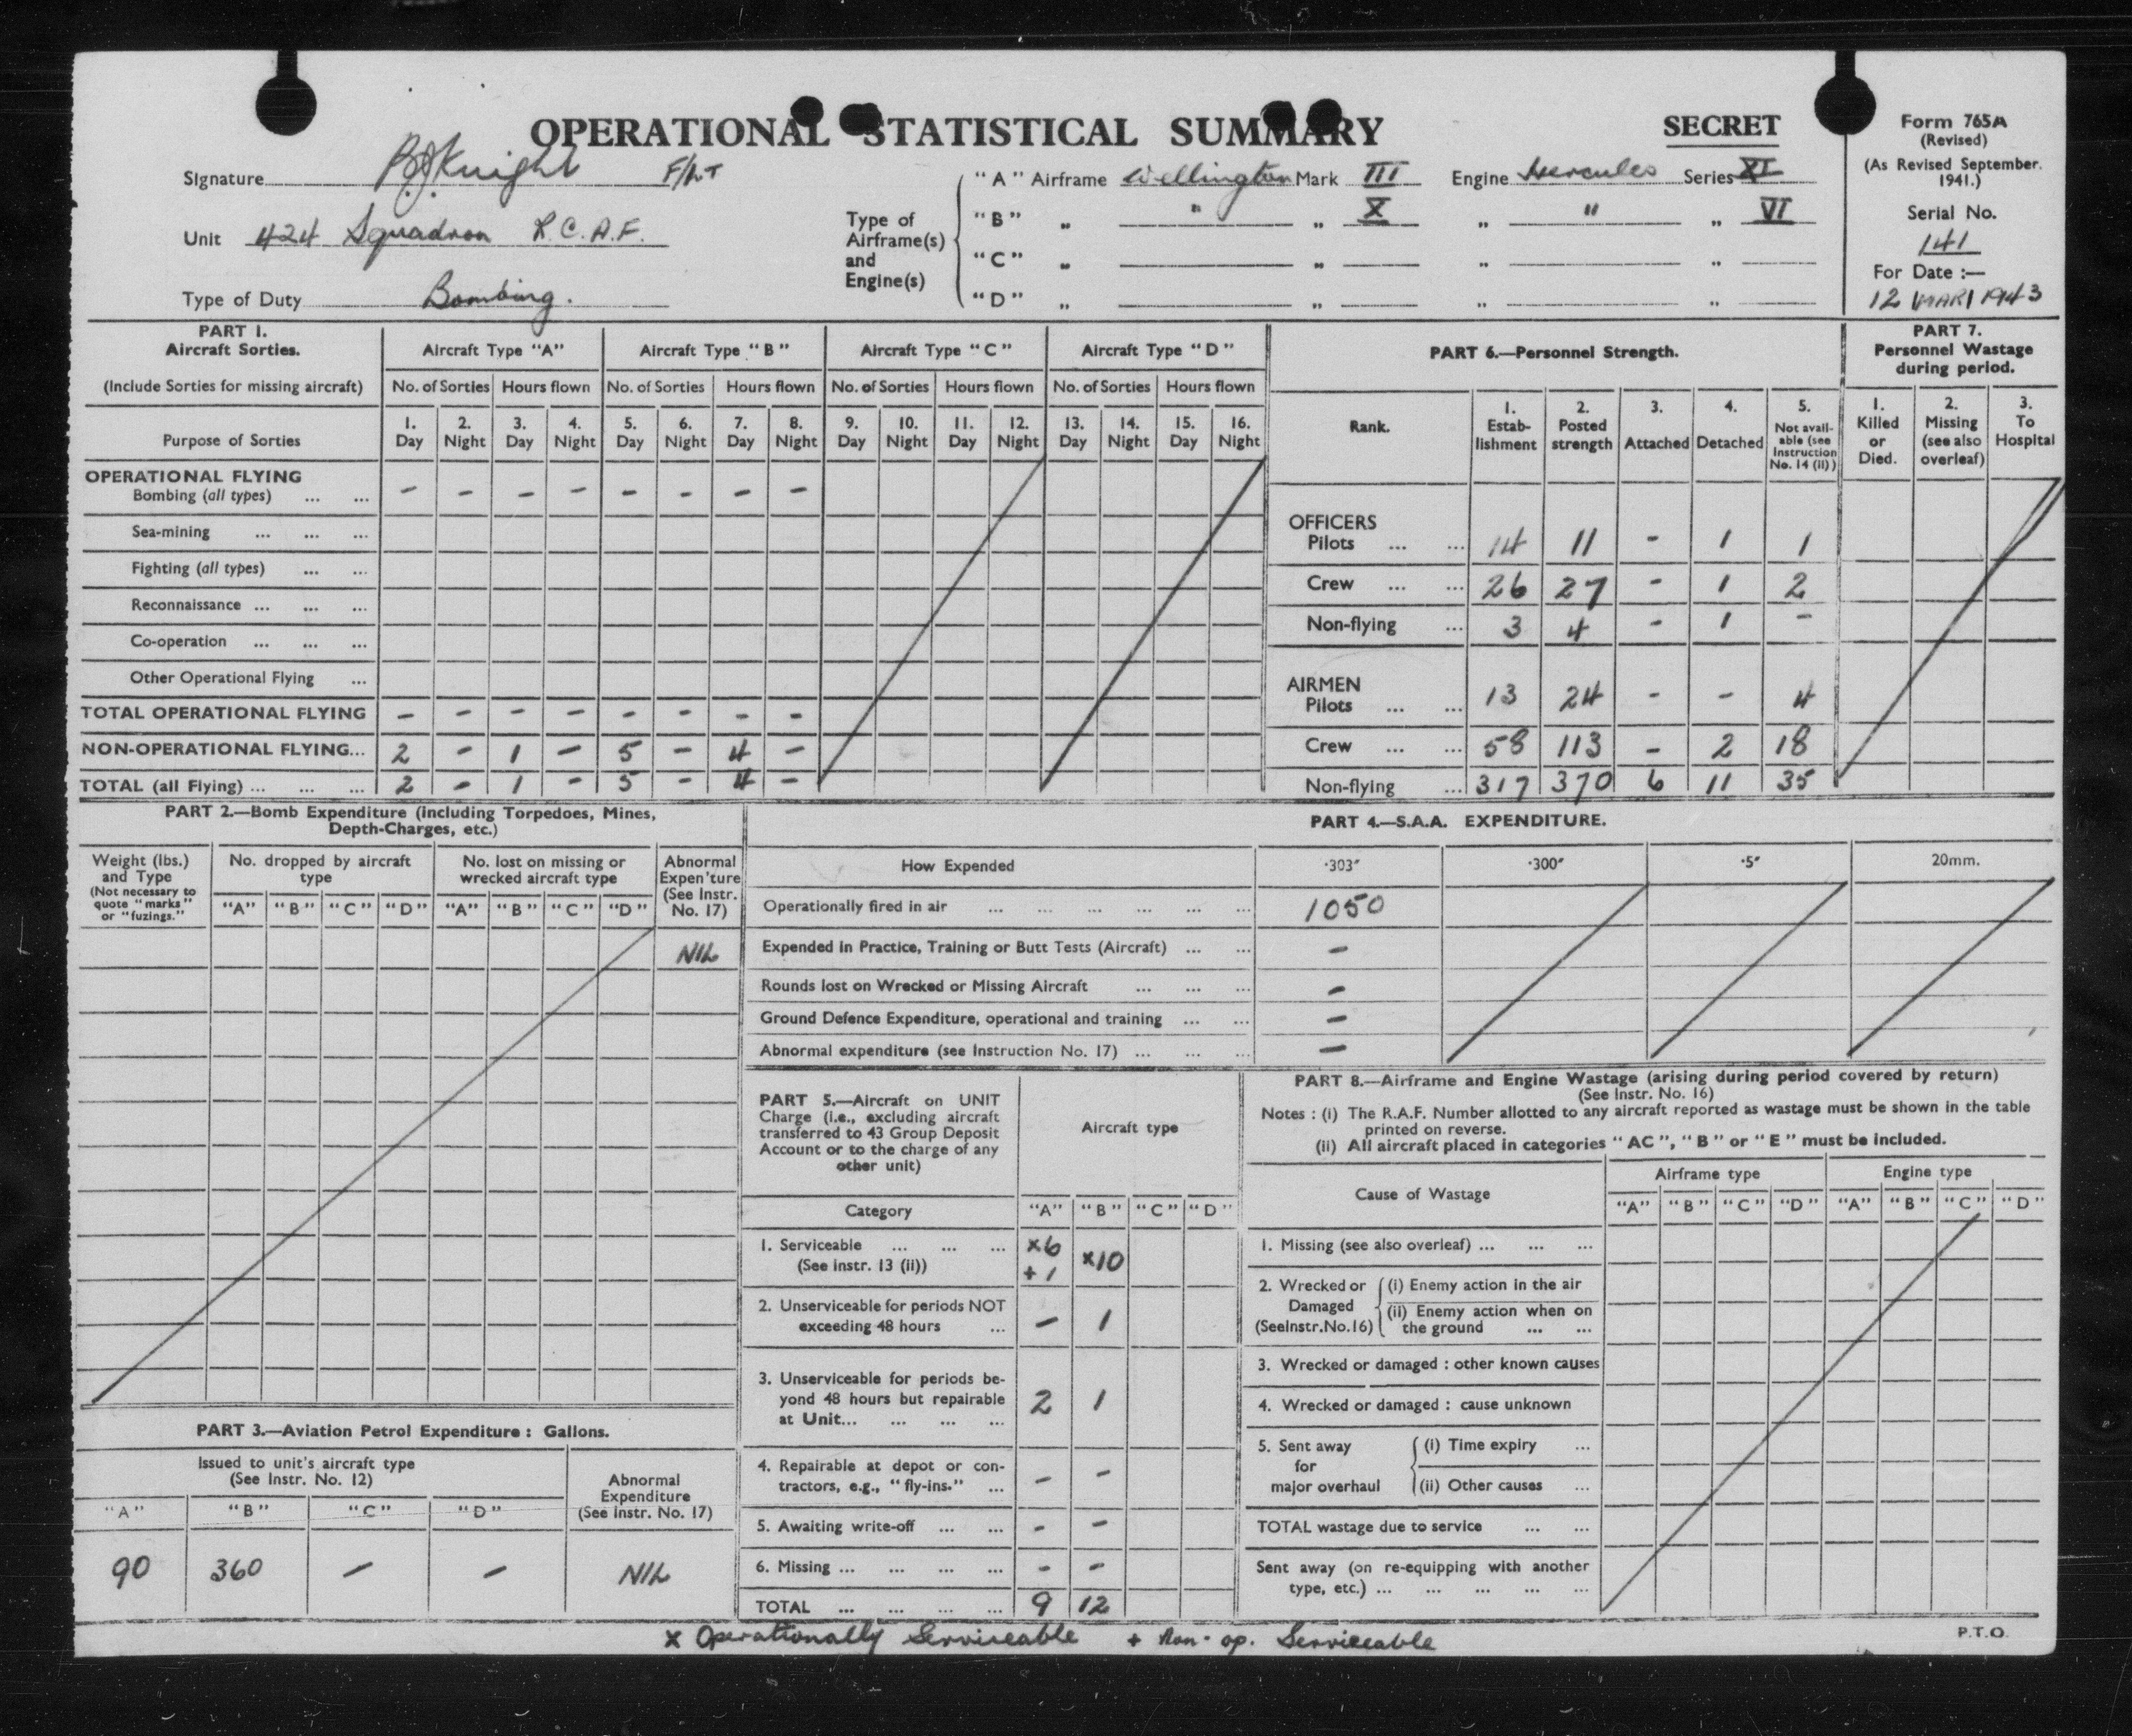 OPERATIONAL STATISTICAL SUMMARY
SECRET
Form 765A
(Revised)
(As Revised September. 1941.)
Serial No.
141
For Date :—
12 MAR 1943
Signature B.J. Knight F/LT
Unit 424 Squadron R.C.A.F.
Type of Duty Bombing.
Type of Airframe(s) and Engine(s)
"A" Airframe Wellington Mark III Engine Hercules Series XI
"B" „ " „ X „ " „ VI
"C" „ „ „ „
"D" „ „ „ „
PART 1.
Aircraft Sorties.
(Include Sorties for missing aircraft)
Purpose of Sorties
Aircraft Type "A" Aircraft Type "B" Aircraft Type "C" Aircraft Type "D"
No. of Sorties Hours flown No. of Sorties Hours flown No. of Sorties Hours flown No. of Sorties Hours flown
1. Day 2. Night 3. Day 4. Night 5. Day 6. Night 7. Day 8. Night 9. Day 10. Night 11. Day 12. Night 13. Day 14. Night 15. Day 16. Night
OPERATIONAL FLYING
Bombing (all types) ... ... – – – – – – – –
Sea-mining ... ... ...
Fighting (all types) ... ...
Reconnaissance ... ... ...
Co-operation ... ... ...
Other Operational Flying ...
TOTAL OPERATIONAL FLYING – – – – – – – –
NON-OPERATIONAL FLYING... 2 – 1 – 5 – 4 –
TOTAL (all Flying) ... ... ... 2 – 1 – 5 – 4 –
PART 6.—Personnel Strength.
Rank. 1. Estab-lishment 2. Posted strength 3. Attached 4. Detached 5. Not avail-able (see Instruction No. 14 (ii))
OFFICERS
Pilots ... ... 14 11 – 1 1
Crew ... ... 26 27 – 1 2
Non-flying ... 3 4 – 1 –
AIRMEN
Pilots ... ... 13 24 – – 4
Crew ... ... 58 113 – 2 18
Non-flying ... 317 370 6 11 35
PART 7.
Personnel Wastage
during period.
1. Killed or Died. 2. Missing (see also overleaf) 3. To Hospital
PART 2.—Bomb Expenditure (including Torpedoes, Mines,
Depth-Charges, etc.)
Weight (lbs.) and Type
(Not necessary to quote "marks" or "fuzings."
No. dropped by aircraft type
No. lost on missing or wrecked aircraft type
Abnormal Expen'ture (See Instr. No. 17)
"A" "B" "C" "D" "A" "B" "C" "D"
NIL
PART 3.—Aviation Petrol Expenditure : Gallons.
Issued to unit's aircraft type
(See Instr. No. 12)
Abnormal Expenditure (See Instr. No. 17)
"A" "B" "C" "D"
90 360 – – NIL
PART 4.—S.A.A. EXPENDITURE.
How Expended ·303″ ·300″ ·5″ 20mm.
Operationally fired in air ... ... ... ... ... ... 1050
Expended in Practice, Training or Butt Tests (Aircraft) ... ... –
Rounds lost on Wrecked or Missing Aircraft ... ... ... –
Ground Defence Expenditure, operational and training ... ... –
Abnormal expenditure (see Instruction No. 17) ... ... ... –
PART 5.—Aircraft on UNIT
Charge (i.e., excluding aircraft
transferred to 43 Group Deposit
Account or to the charge of any
other unit)
Aircraft type
Category "A" "B" "C" "D"
1. Serviceable ... ... ... x6 x10
(See instr. 13 (ii)) +1
2. Unserviceable for periods NOT
exceeding 48 hours ... – 1
3. Unserviceable for periods be-
yond 48 hours but repairable
at Unit... ... ... ... 2 1
4. Repairable at depot or con-
tractors, e.g., "fly-ins." ... – –
5. Awaiting write-off ... ... – –
6. Missing ... ... ... ... – –
TOTAL ... ... ... ... 9 12
PART 8.—Airframe and Engine Wastage (arising during period covered by return)
(See Instr. No. 16)
Notes : (i) The R.A.F. Number allotted to any aircraft reported as wastage must be shown in the table
printed on reverse.
(ii) All aircraft placed in categories "AC", "B" or "E" must be included.
Cause of Wastage
Airframe type Engine type
"A" "B" "C" "D" "A" "B" "C" "D"
1. Missing (see also overleaf) ... ... ...
2. Wrecked or Damaged (SeeInstr.No.16)
(i) Enemy action in the air
(ii) Enemy action when on
the ground ... ...
3. Wrecked or damaged : other known causes
4. Wrecked or damaged : cause unknown
5. Sent away for major overhaul
(i) Time expiry ...
(ii) Other causes ...
TOTAL wastage due to service ... ...
Sent away (on re-equipping with another
type, etc.) ... ... ... ... ...
x Operationally Serviceable + Non-op. Serviceable
P.T.O.